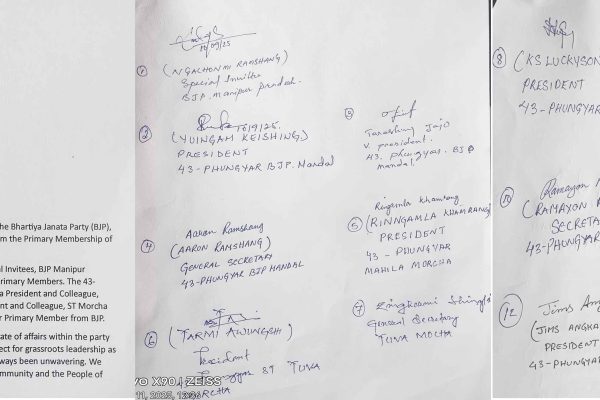 he Bhartiya Janata Party (BJP),
m the Primary Membership of
l Invitees, BJP Manipur
rimary Members. The 43-
a President and Colleague,
nt and Colleague, ST Morcha
r Primary Member from BJP.
ate of affairs within the party
ect for grassroots leadership as
lways been unwavering. We
ommunity and the People of
10/09/25
1 (NGACHONMI RAMSHANG)
Special Invitee
BJP. Manipur Pradesh.
2 16/9/25.
(YUINGAM KEISHING)
PRESIDENT
43-PHUNGYAR BJP. Mandal
3
Jajo
V. President.
43. Phungyar. BJP
mandal.
4 Aaron Ramshang
(AARON RAMSHANG)
GENERAL SECRETARY
43-PHUNGYAR BJP MANDAL
Ringamla Khamrang
5 (RINNGAMLA KHAMRANG)
PRESIDENT
43 - PHUNGYAR
MAHILA MORCHA
6 (TARMI AWUNGSHI)
President
ST YUVA
MORCHA
7
General Secretary
YUVA MOCHA
VO X90 | ZEISS
11, 2025, 12:36
8 (KS LUCKYSON
PRESIDENT
43-PHUNGYAR
10 Ramayon
(RAMAYON
SECRETA
43-PHUNGYAR
12 Jims Ang
(JIMS ANGKA
PRESIDENT
43-PHUNGYA